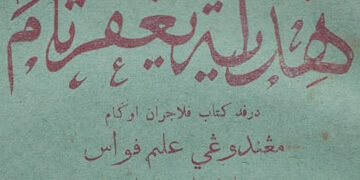 هداية يڠفرتام
درفد كتاب فلاجران اوݢام
مڠندوڠي علم فواس